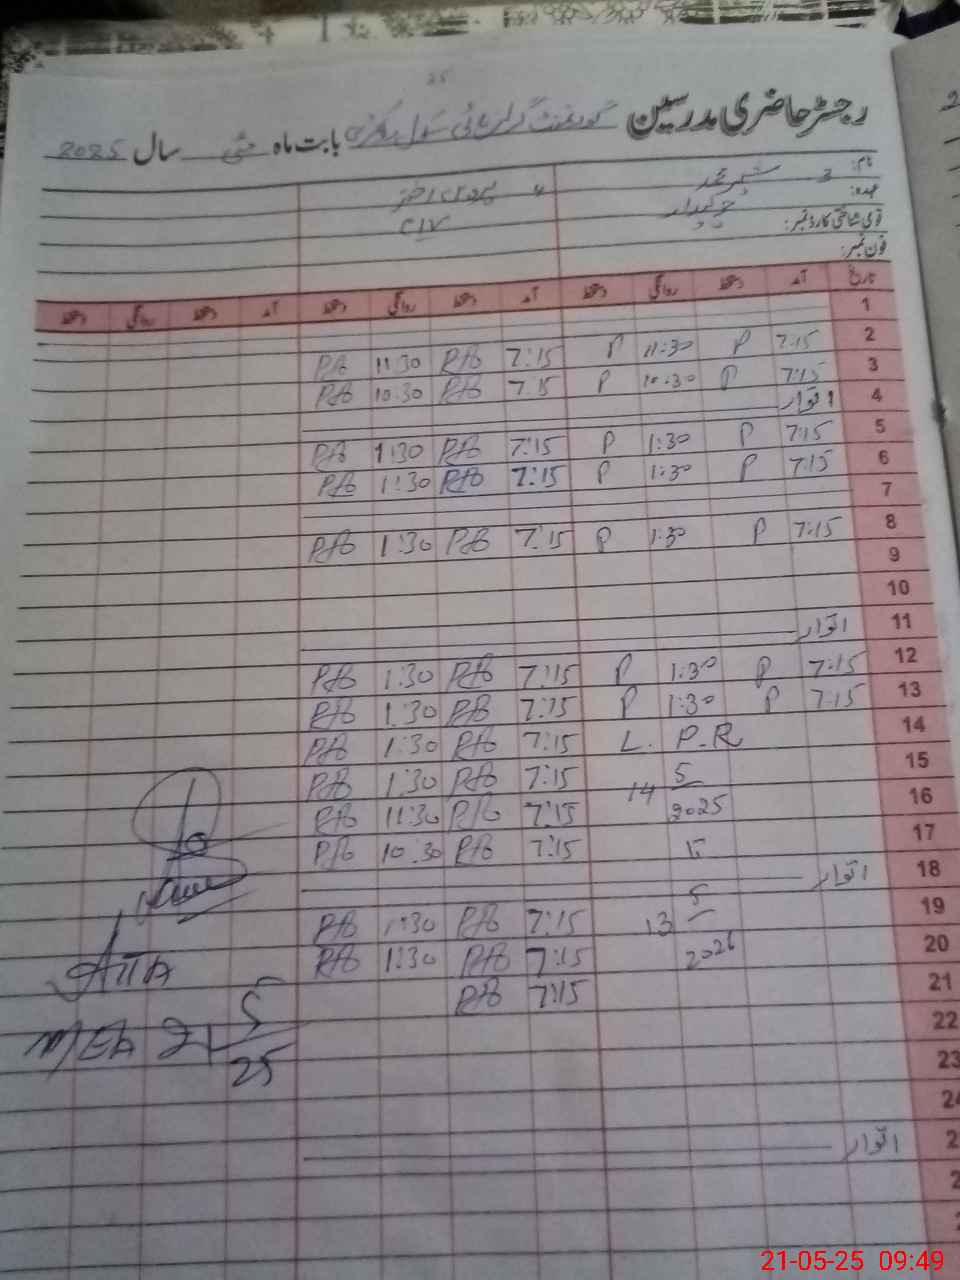 رجسٹر حاضری مدرسین گورنمنٹ گرلز ہائی سکول بابت ماہ مئی سال 2025
نام: 3 شیر محمد 4
عہدہ: چوکیدار CIV
قومی شناختی کارڈ نمبر:
فون نمبر:
تاریخ آمد دستخط روانگی دستخط آمد دستخط روانگی دستخط آمد دستخط روانگی دستخط
1
2 7:15 P 11:30 P 7:15 RAB 11:30 RAB
3 7:15 P 10:30 P 7:15 RAB 10:30 RAB
4 اتوار
5 7:15 P 1:30 P 7:15 RAB 1:30 RAB
6 7:15 P 1:30 P 7:15 RAB 1:30 RAB
7
8 7:15 P 1:30 P 7:15 RAB 1:30 RAB
9
10
11 اتوار
12 7:15 P 1:30 P 7:15 RAB 1:30 RAB
13 7:15 P 1:30 P 7:15 RAB 1:30 RAB
14 L. P.R 7:15 RAB 1:30 RAB
15 14 5 7:15 RAB 1:30 RAB
16 2025 7:15 RAB 11:30 RAB
17 7:15 RAB 10:30 RAB
18 اتوار
19 13 5 7:15 RAB 1:30 RAB
20 2026 7:15 RAB 1:30 RAB
21 7:15 RAB
22
23
24
اتوار
MEA 21 5
25
21-05-25 09:49